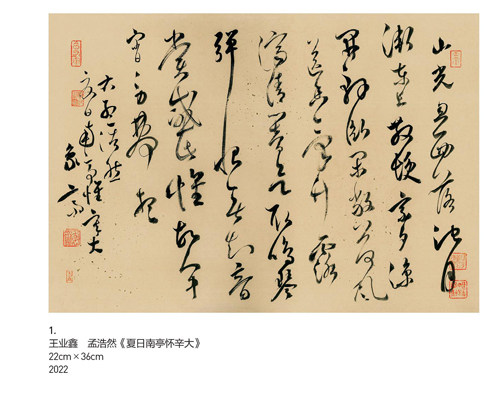 山光忽西落池月
渐东上散发乘夕凉
开轩卧闲敞荷风
送香气竹露
滴清响欲取鸣琴
弹恨无知音
赏感此怀故人
中宵劳梦想
孟浩然
夏日南亭怀辛大
1.
王业鑫 孟浩然《夏日南亭怀辛大》
22cm×36cm
2022